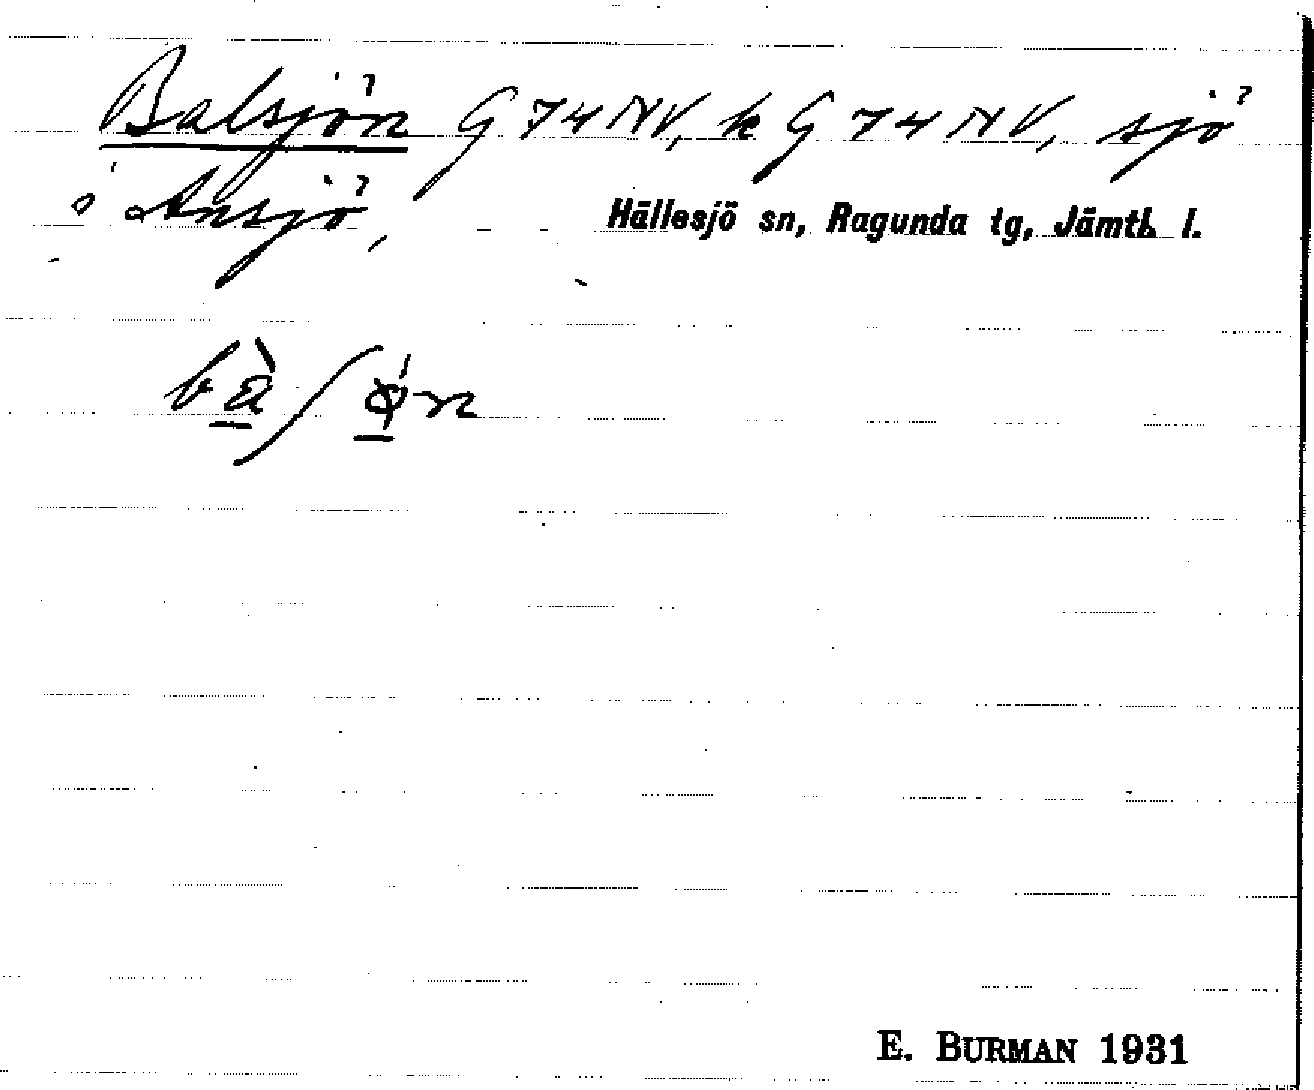 Balsjön G 74 NV, k G 74 NV, sjö
i Ansjö, Hällesjö sn, Ragunda tg, Jämtl. l.
bà̱ʃǿ̱n
E. BURMAN 1931